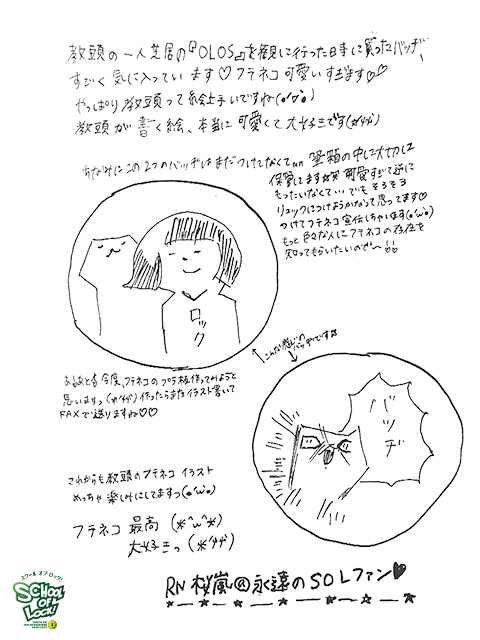 教頭の一人芝居の『OLOS』を観に行った日に買ったバッヂ
すごく気に入っています♡フテネコ可愛いすぎます♡♡
やっぱり教頭って絵上手いですね(•'∀'•)
教頭が書く絵、本当に可愛くて大好きです
ちなみにこの2つのバッヂはまだつけてなくて… 筆箱の中に大切に
保管してます 可愛すぎて逆に
もったいなくて… でもそろそろ
リュックにつけようかなって思ってます♡
つけてフテネコ宣伝しちゃいます(•'ω'•)
もっと色々な人にフテネコの存在を
知ってもらいたいので〜!!
ロック
↑こんな感じの
バッヂです
バッヂ
あぁあと今度、フテネコのプラ板作ってみようと
思いますっ 作ったらまたイラスト書いて
FAXで送りますね♡♡
これからも教頭のフテネコイラスト
めっちゃ楽しみにしてますっ(•'ω'•)
フテネコ最高(*^ω^*)
大好きっ
RN 桜嵐@永遠のSOLファン♥
スクール オブ ロック!
SCHOOL OF LOCK!